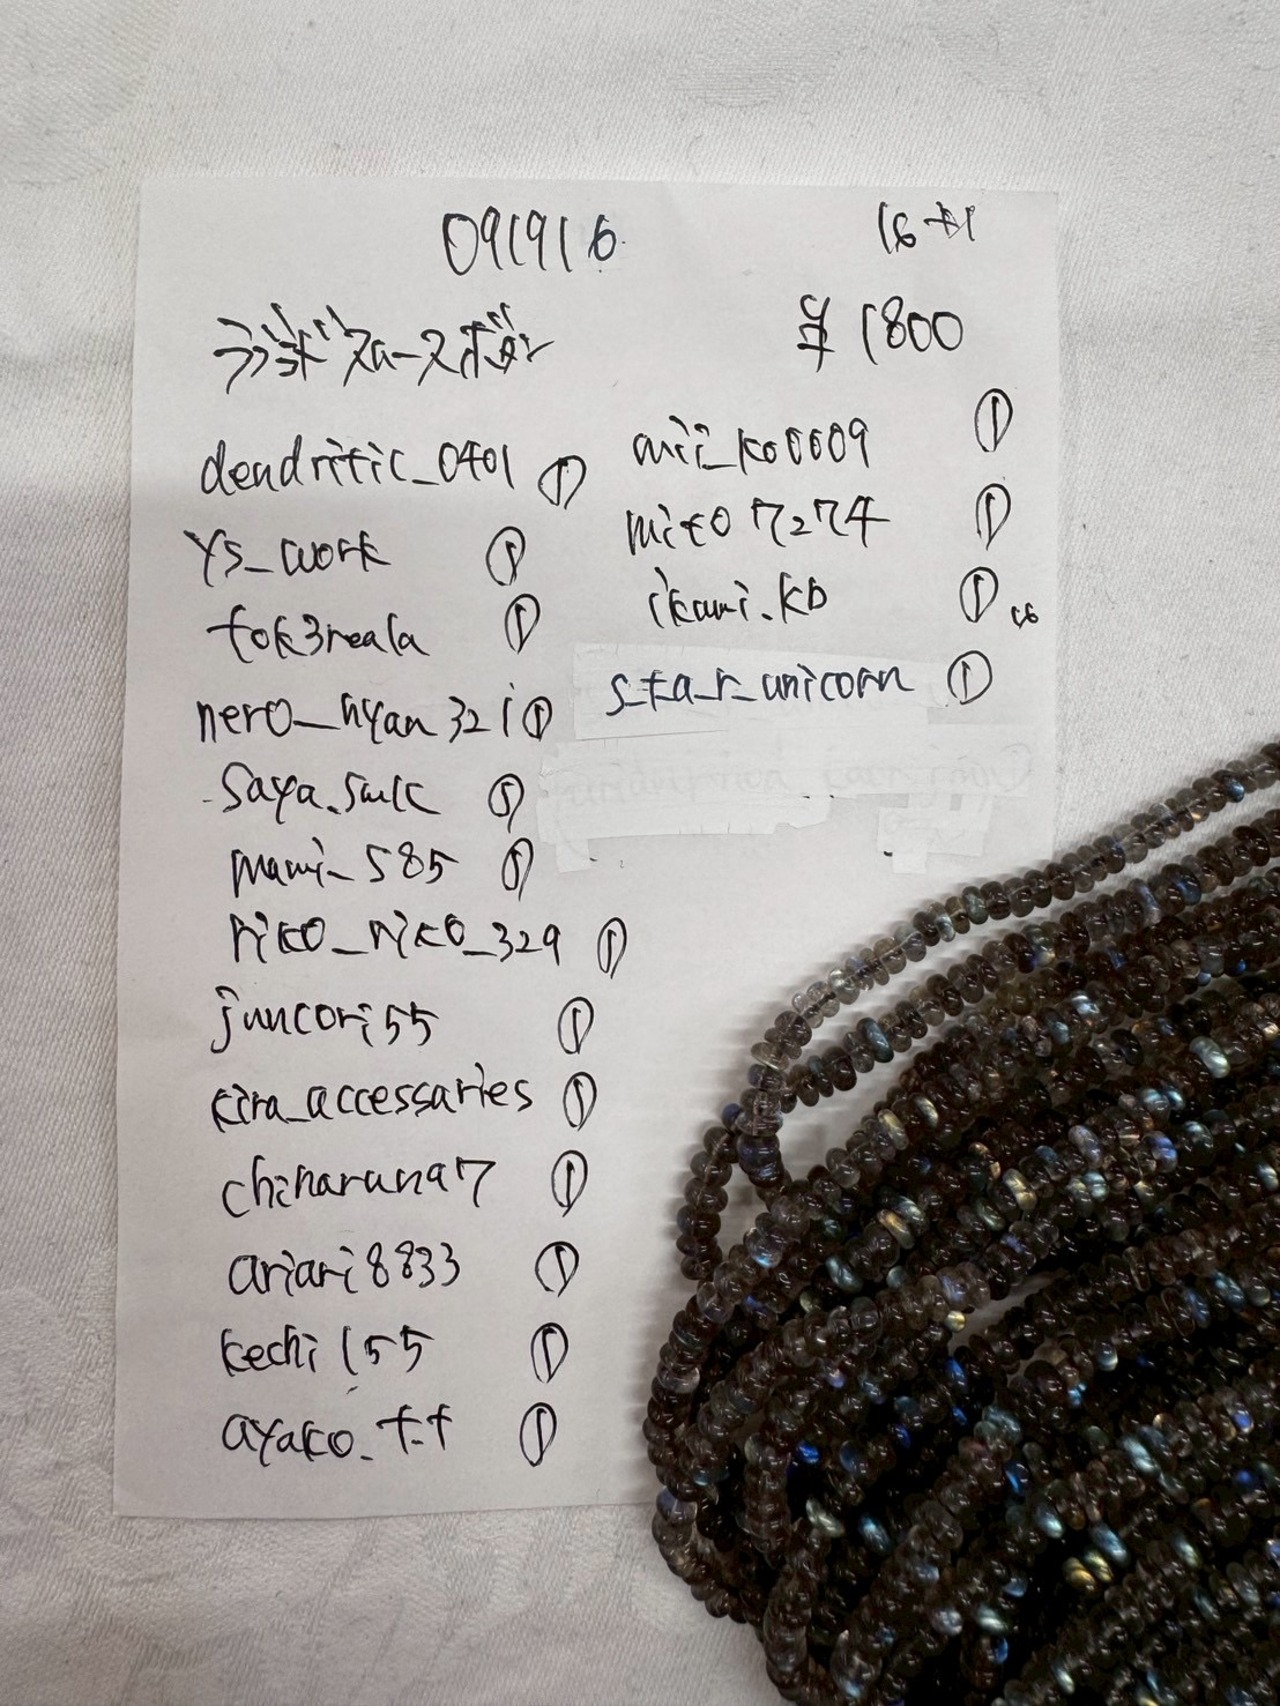 091916
16+1
ラブラドスムースボタン
¥1800
dendritic_0401 ①
ys_work ①
tok3reala ①
nero_nyan321 ①
saya.smlc ①
mami_585 ①
riko_riko_329 ①
juncori55 ①
kira_accessaries ①
chiharuna97 ①
ariari8833 ①
kechi155 ①
ayako_t.t ①
mii_ko0009 ①
mito7274 ①
ikumi.kb ① 16
s_ta_r_unicorn ①